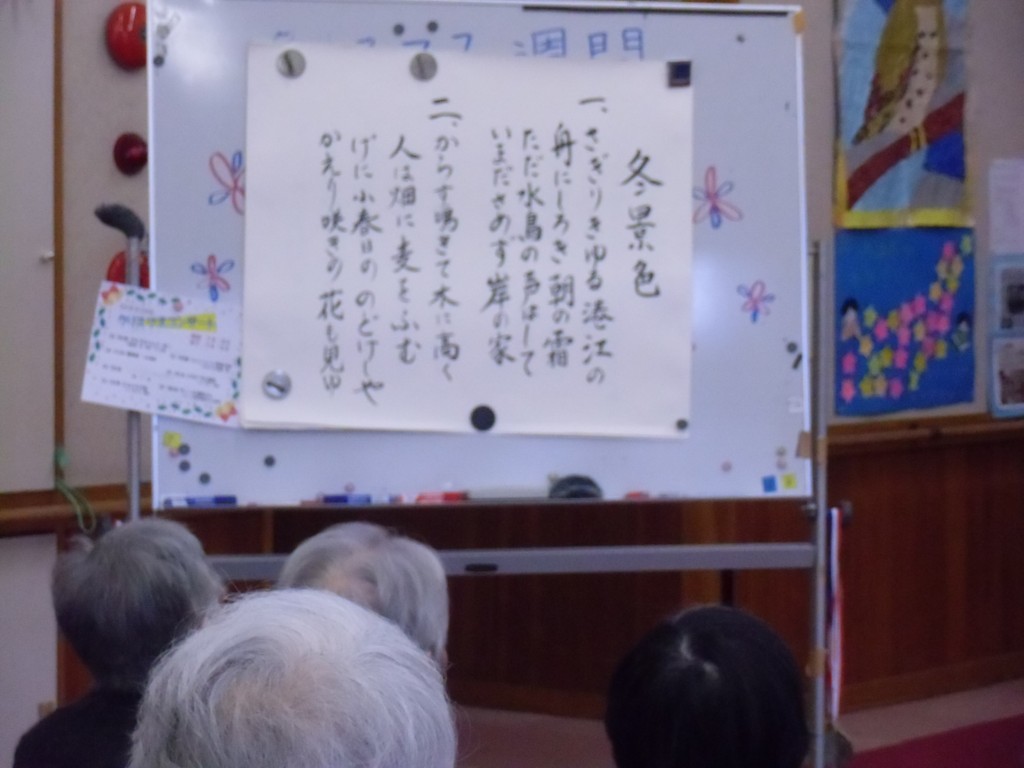 週間
冬景色
一、さぎりきゆる港江の
舟にしろき朝の霜
ただ水鳥の声はして
いまださめず岸の家
二、からす鳴きて木に高く
人は畑に麦をふむ
げに小春日ののどけしや
かえり咲きの花も見ゆ